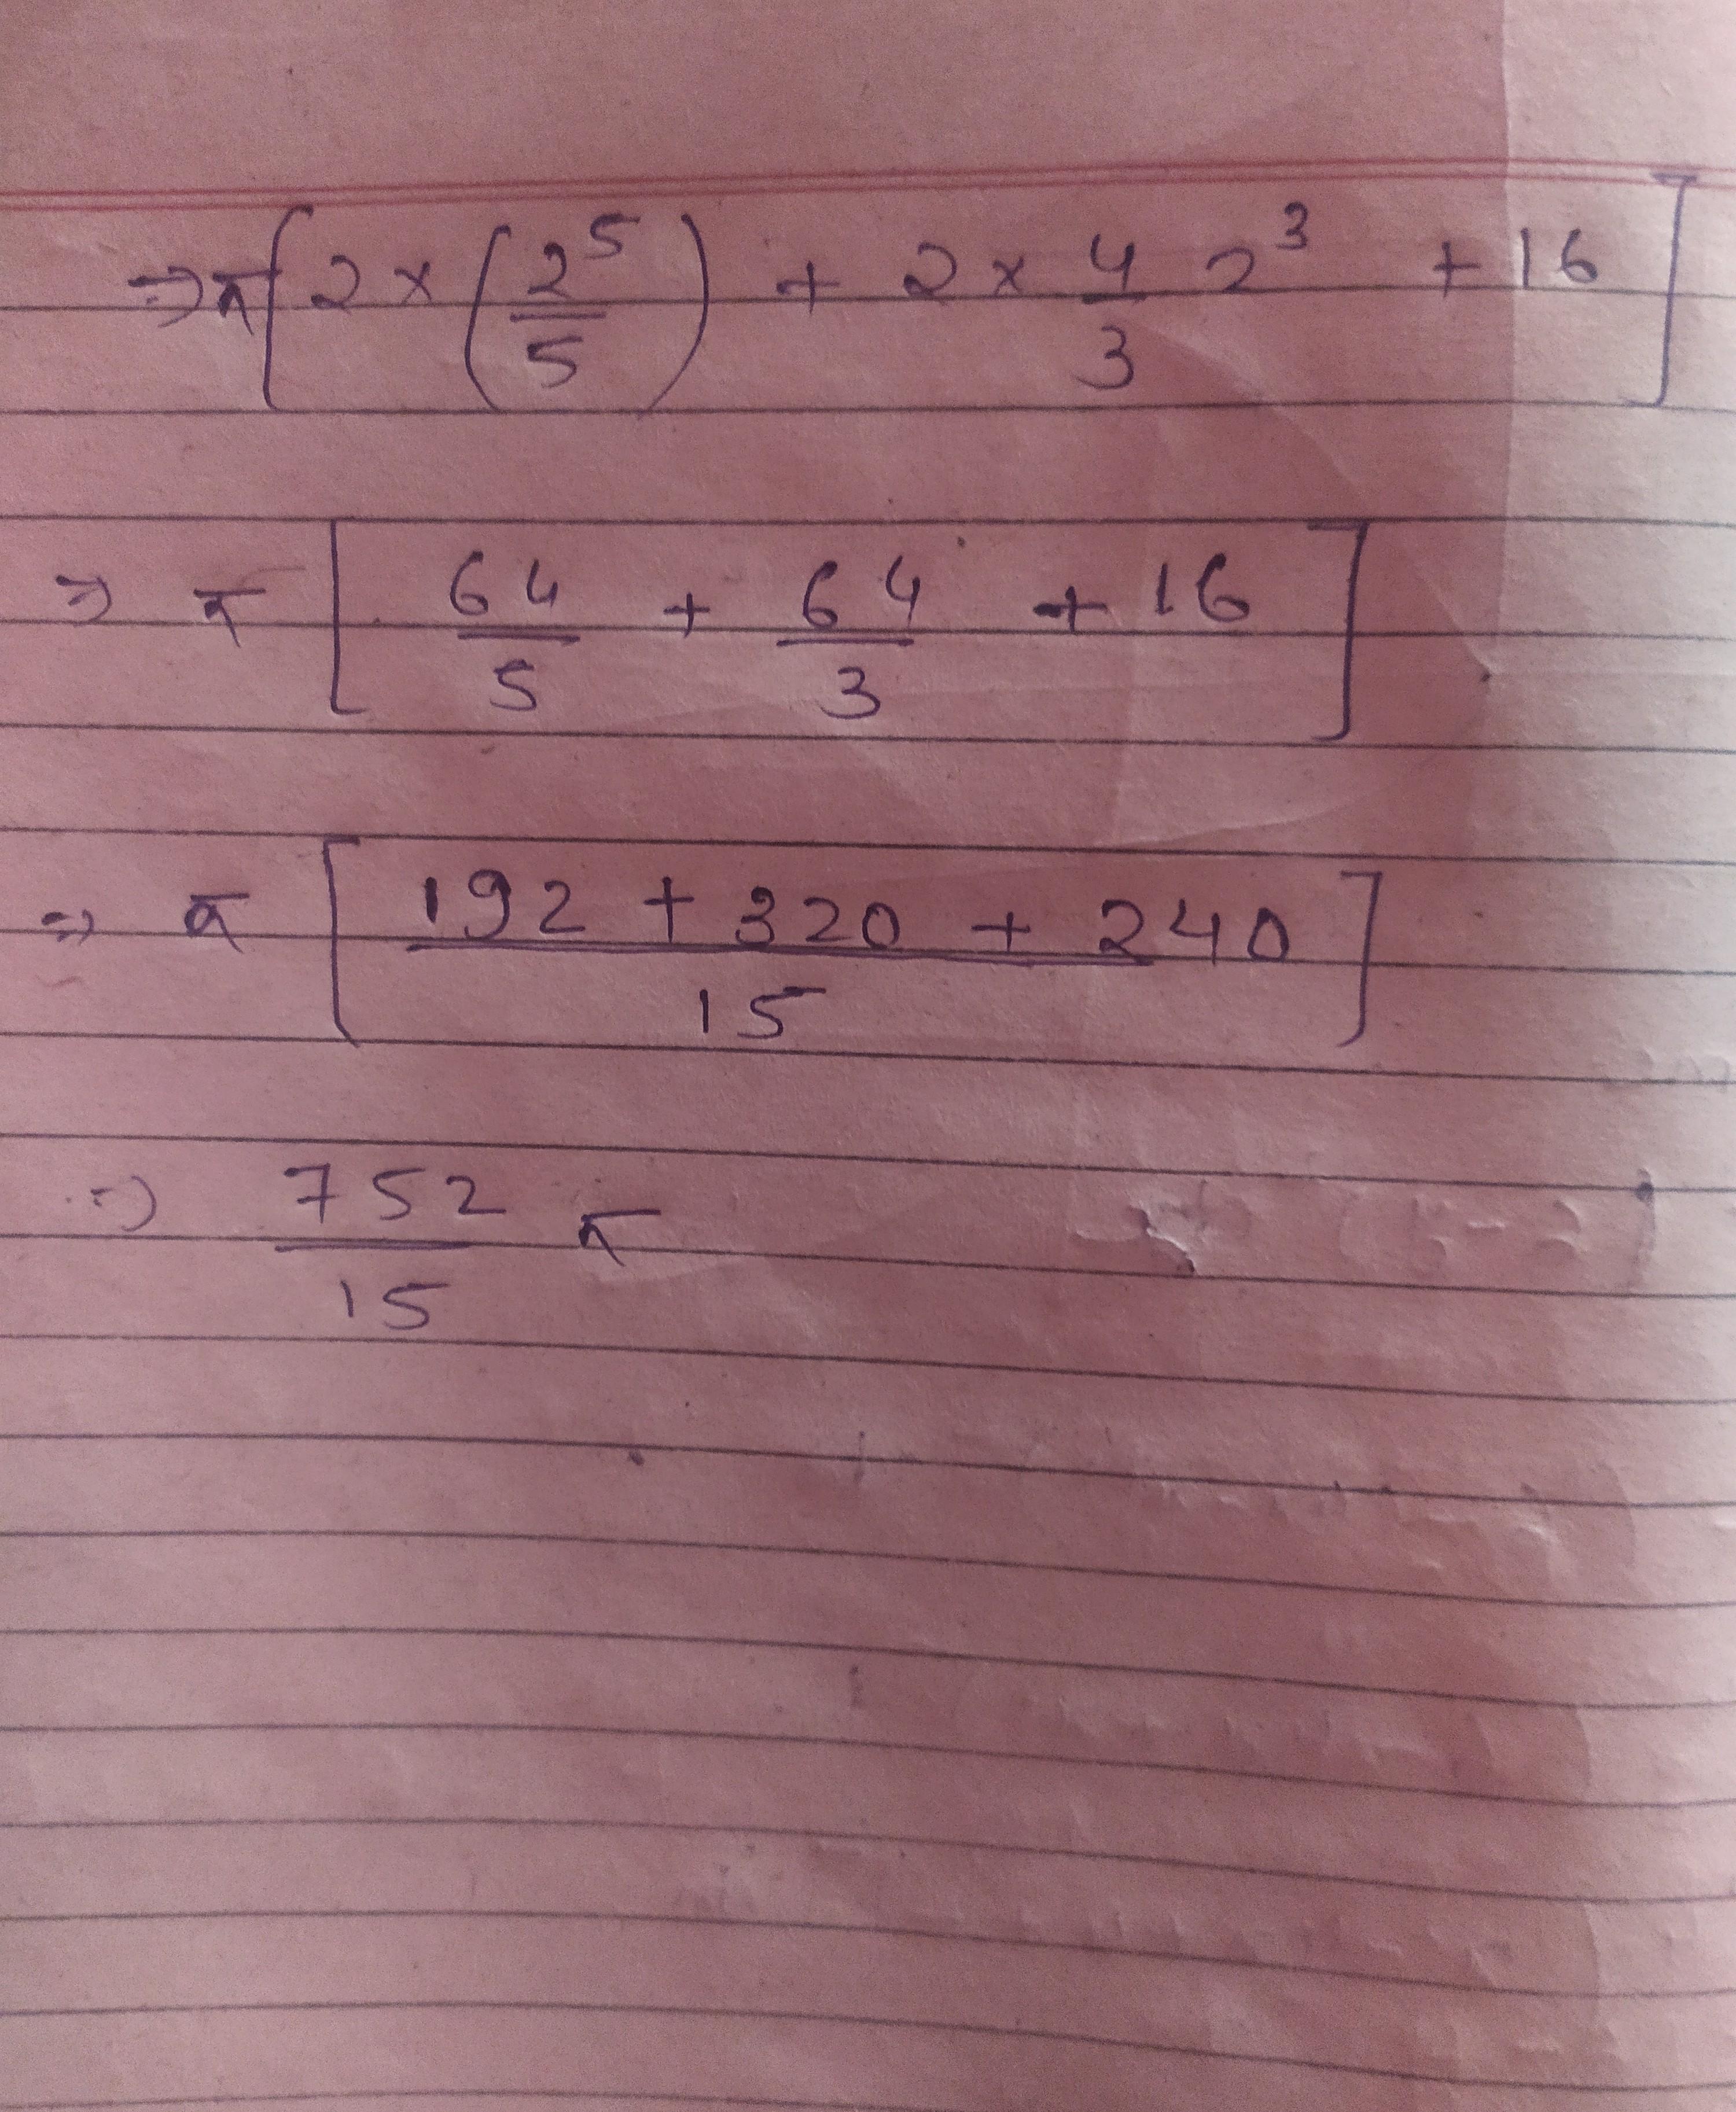 ⇒ π[2 × (2⁵/5) + 2 × 4/3 2³ + 16]
⇒ π[64/5 + 64/3 + 16]
⇒ π[(192 + 320 + 240)/15]
⇒ 752/15 π